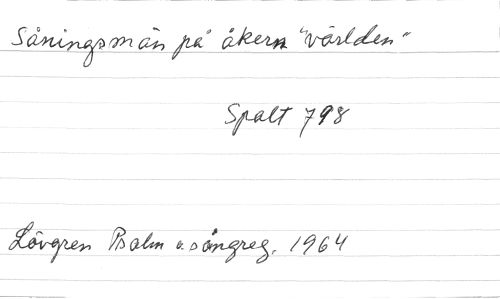 Såningsmän på åkern "världen"
Spalt 798
Lövgren Psalm o. sångreg. 1964